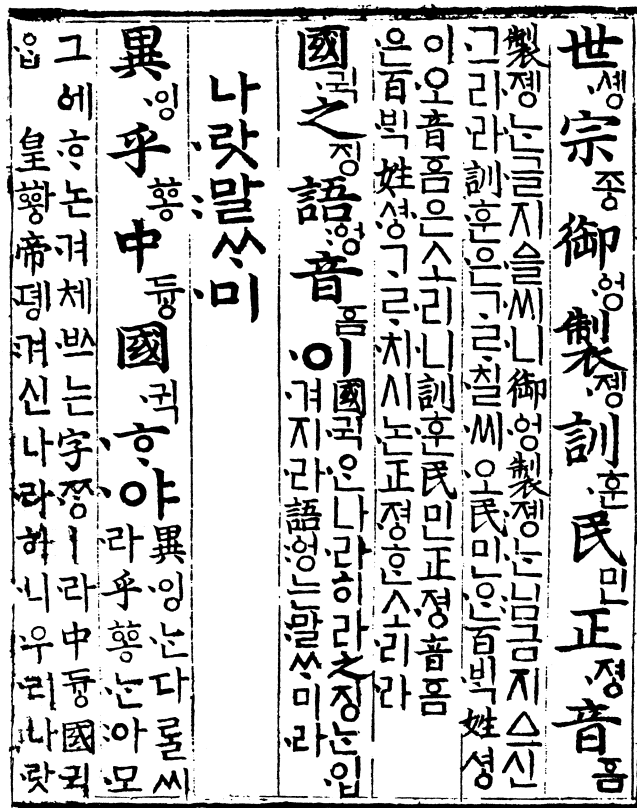 世솅宗조ᇰ御ᅌᅥᆼ製졩訓훈民민正져ᇰ音ᅙᅳᆷ
製졩ᄂᆞᆫ글지ᅀᅳᆯ씨니御ᅌᅥᆼ製졩ᄂᆞᆫ님금지ᅀᅳ신
그리라訓훈은ᄀᆞᄅᆞ칠씨오民민ᄋᆞᆫ百ᄇᆡᆨ姓셔ᇰ
이오音ᅙᅳᆷ은소리니訓훈民민正져ᇰ音ᅙᅳᆷ
은百ᄇᆡᆨ姓셔ᇰᄀᆞᄅᆞ치시논正져ᇰᄒᆞᆫ소리라
國귁之징語ᅌᅥᆼ音ᅙᅳᆷ이
國귁ᄋᆞᆫ나라히라之징ᄂᆞᆫ입
겨지라語ᅌᅥᆼ는말ᄊᆞ미라
나랏말ᄊᆞ미
異잉乎ᅘᅩᆼ中듀ᇰ國귁ᄒᆞ야
異잉ᄂᆞᆫ다ᄅᆞᆯ씨
라乎ᅘᅩᆼᄂᆞᆫ아모
그에ᄒᆞ논겨체ᄡᅳ는字ᄍᆞᆼㅣ라中듀ᇰ國귁
皇ᅘᅪᇰ帝뎽겨신나라히니우리나랏